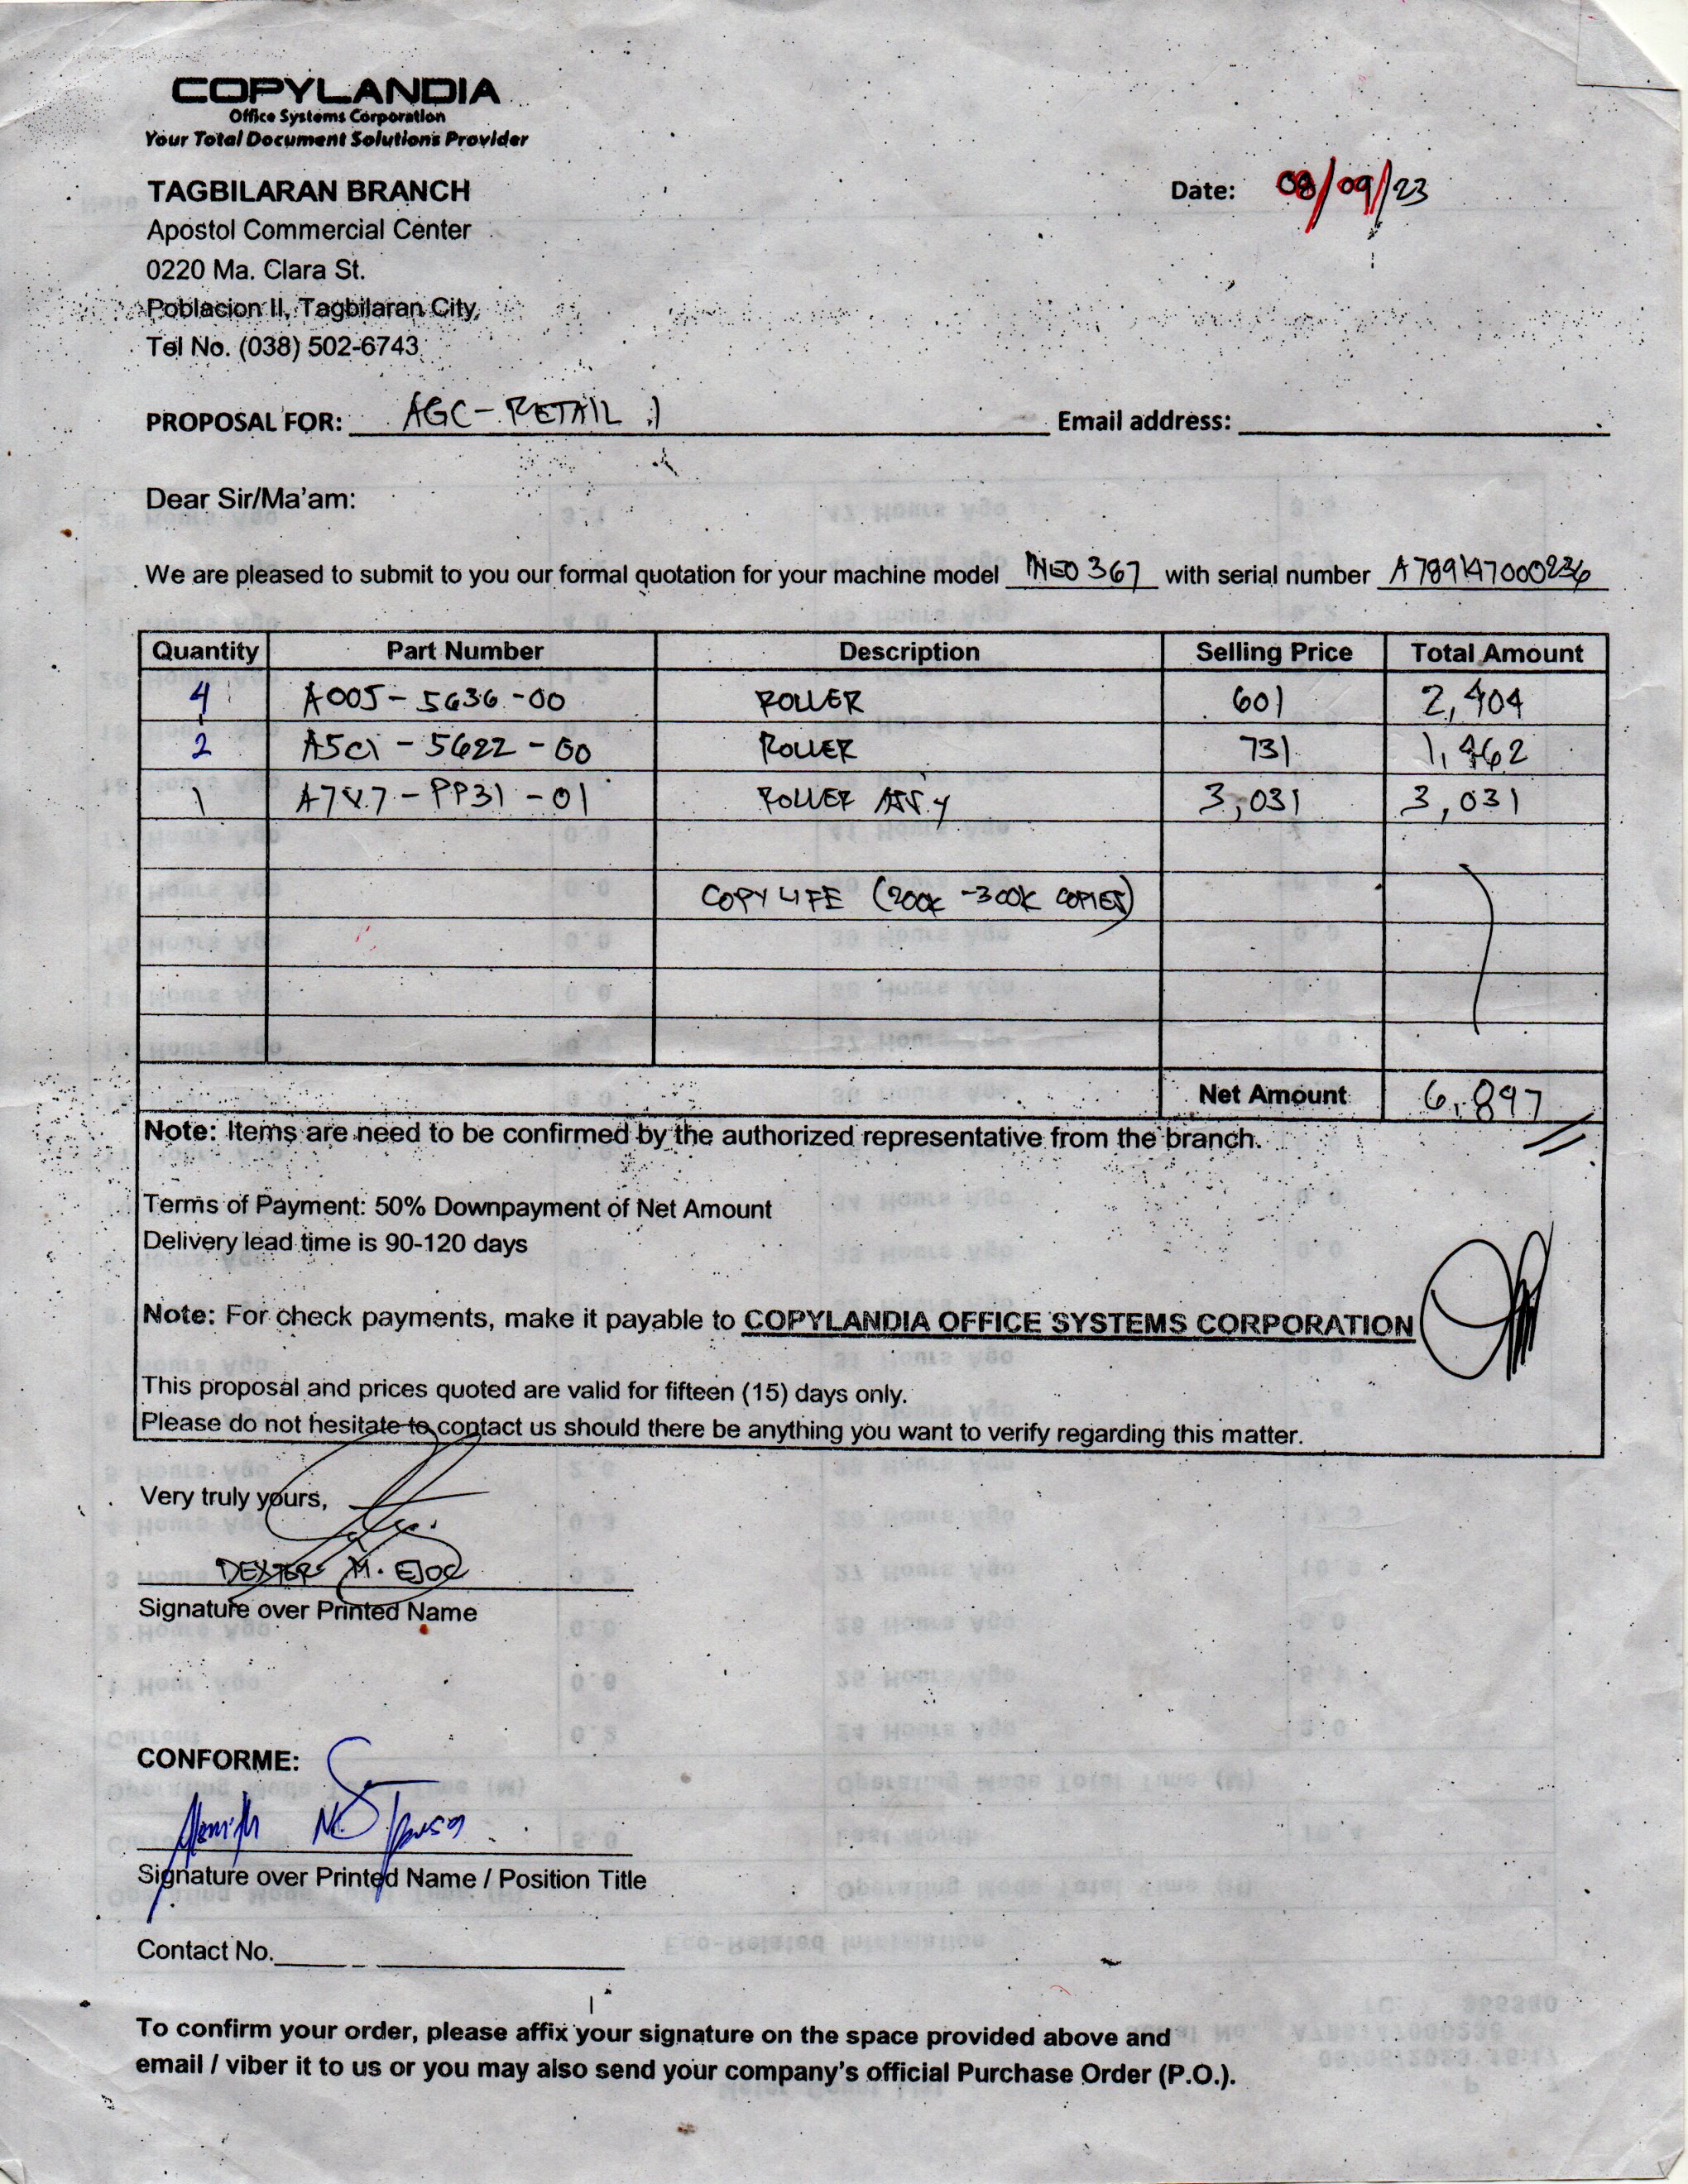 COPYLANDIA
Office Systems Corporation
Your Total Document Solutions Provider
TAGBILARAN BRANCH
Date: 08/09/23
Apostol Commercial Center
0220 Ma. Clara St.
Poblacion II, Tagbilaran City,
Tel No. (038) 502-6743
PROPOSAL FOR: AGC - RETAIL 1 Email address:
Dear Sir/Ma'am:
We are pleased to submit to you our formal quotation for your machine model INEO 367 with serial number A789147000236
Quantity Part Number Description Selling Price Total Amount
4 A00J - 5636 - 00 ROLLER 601 2,404
2 A5C1 - 5622 - 00 ROLLER 731 1,462
1 A7V7 - PP31 - 01 ROLLER ASS'Y 3,031 3,031
COPY LIFE (200K - 300K COPIES)
Net Amount 6,897
Note: Items are need to be confirmed by the authorized representative from the branch.
Terms of Payment: 50% Downpayment of Net Amount
Delivery lead time is 90-120 days
Note: For check payments, make it payable to COPYLANDIA OFFICE SYSTEMS CORPORATION
This proposal and prices quoted are valid for fifteen (15) days only.
Please do not hesitate to contact us should there be anything you want to verify regarding this matter.
Very truly yours,
DEXTER M. EJOC
Signature over Printed Name
CONFORME:
Signature over Printed Name / Position Title
Contact No.
To confirm your order, please affix your signature on the space provided above and
email / viber it to us or you may also send your company's official Purchase Order (P.O.).